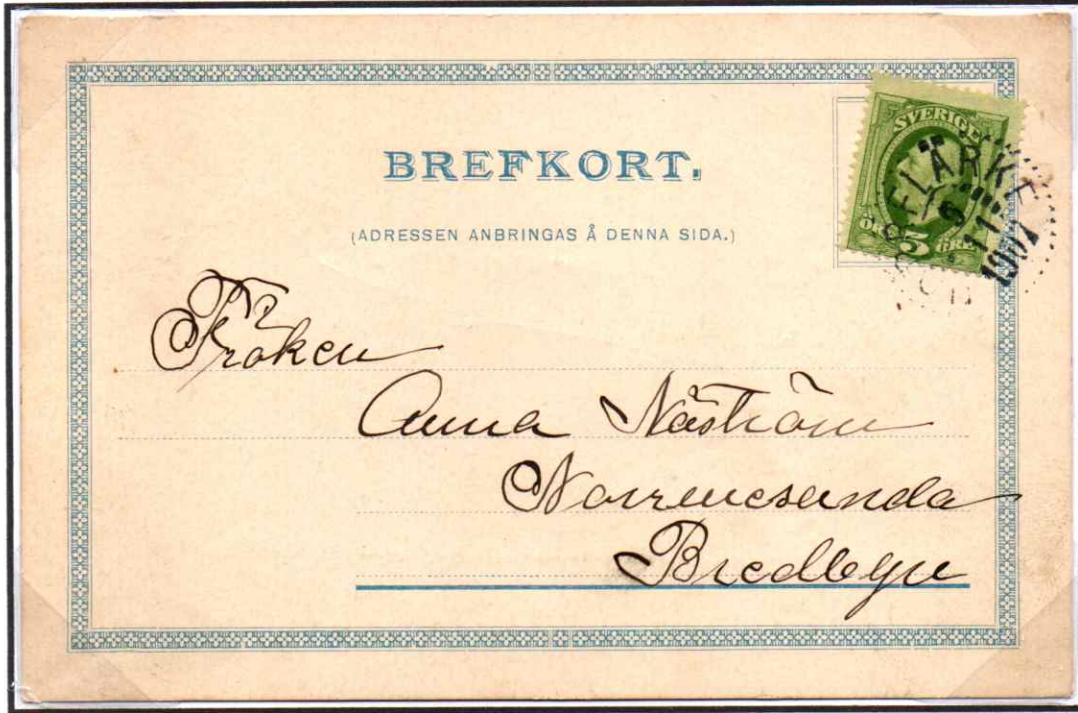 BREFKORT.
(ADRESSEN ANBRINGAS Å DENNA SIDA.)
SVERIGE
5
ÖRE
6
11
1902
Fröken
Anna Näström
Norrmesunda
Bredbyn